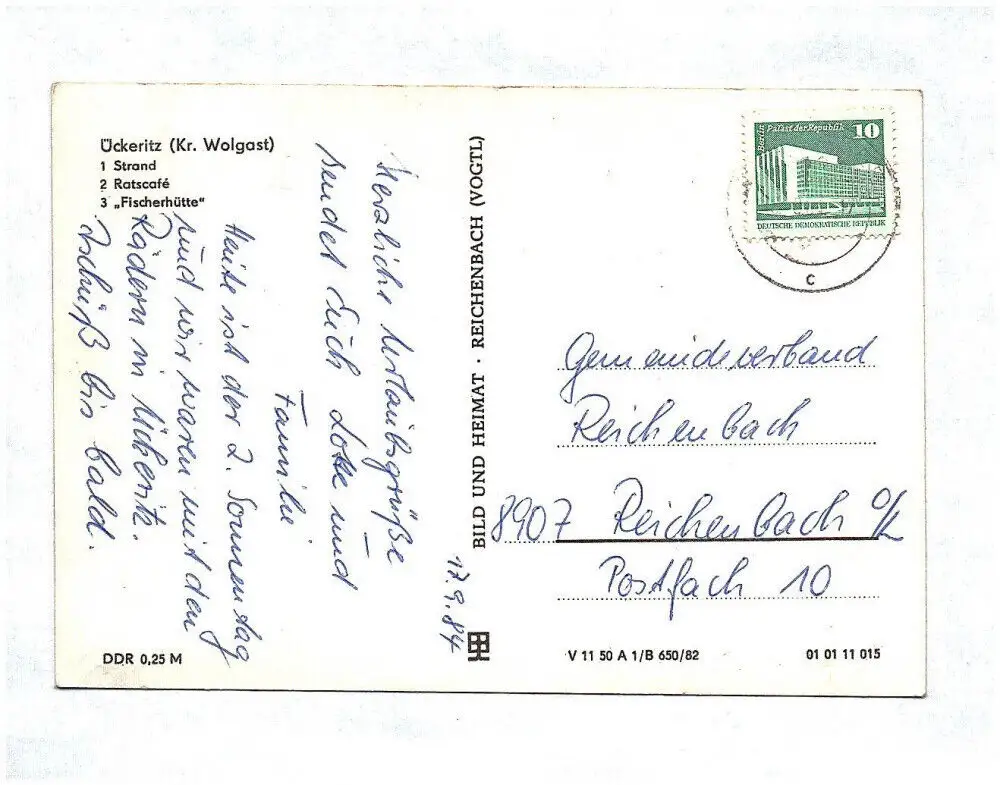 Ückeritz (Kr. Wolgast)
1 Strand
2 Ratscafé
3 „Fischerhütte"
17.9.84
Herzliche Urlaubsgrüße
sendet Euch Lotte und
Familie
Heute ist der 2. Sonnentag
und wir waren mit den
Rädern in Ückeritz.
Tschüß bis bald.
DDR 0,25 M
BILD UND HEIMAT · REICHENBACH (VOGTL)
Berlin Palast der Republik 10
DEUTSCHE DEMOKRATISCHE REPUBLIK
c
Gemeindeverband
Reichenbach
8907 Reichenbach O/L
Postfach 10
V 11 50 A 1/B 650/82
01 01 11 015